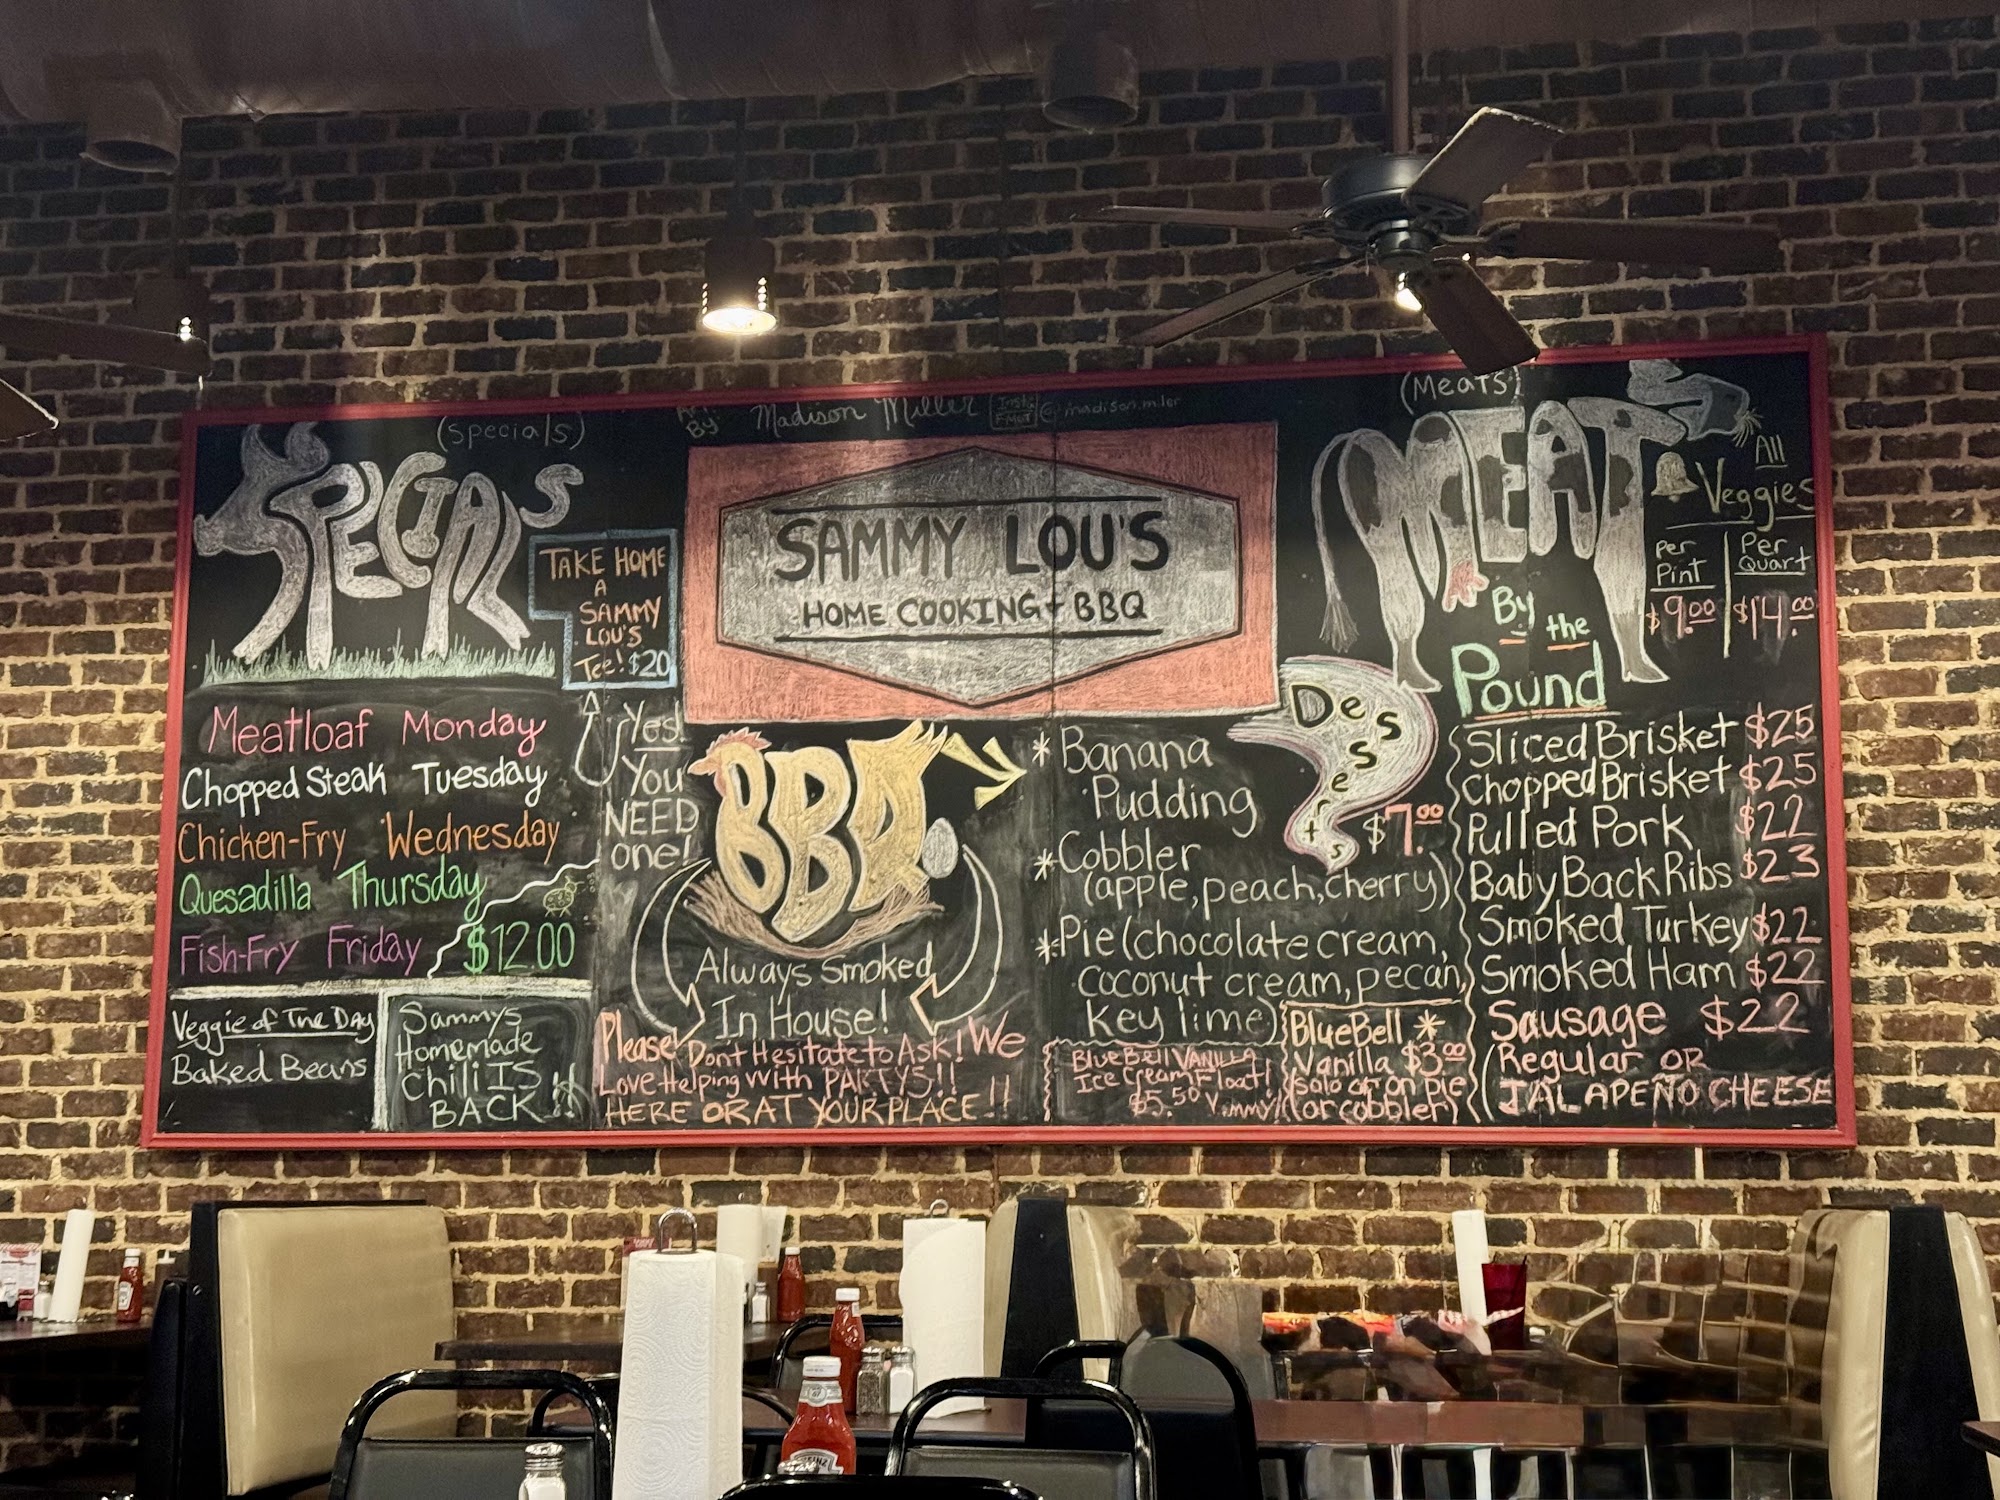 (specials)
SPECIALS
TAKE HOME
A
SAMMY
LOU'S
Tee! $20
Meatloaf Monday
Chopped Steak Tuesday
Chicken-Fry Wednesday
Quesadilla Thursday
Fish-Fry Friday $12.00
Veggie of The DAY
Baked Beans
Sammys
Homemade
chili IS
BACK!!
Yes!
You
NEED
one!
Art
By: Madison Miller
SAMMY LOU'S
HOME COOKING + BBQ
BBQ
Always Smoked
In House!
Please Don't Hesitate to Ask! We
Love Helping with PARTYS!!
HERE OR AT YOUR PLACE!!
Desserts
$7.00
* Banana
Pudding
* Cobbler
(apple, peach, cherry)
* Pie (chocolate cream,
coconut cream, pecan,
key lime)
Blue Bell VANILLA
Ice Cream Float!
$5.50 Yummy!
Blue Bell *
Vanilla $3.00
(solo or on pie
or cobbler)
(Meats)
MEAT
By the
Pound
All
Veggies
Per
Pint
$9.00
Per
Quart
$14.00
Sliced Brisket $25
Chopped Brisket $25
Pulled Pork $22
Baby Back Ribs $23
Smoked Turkey $22
Smoked Ham $22
Sausage $22
(Regular OR
JALAPEÑO CHEESE
HEINZ